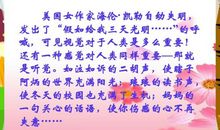 美国女作家海伦·凯勒自幼失明，
发出了“假如给我三天光明……”的呼
喊，可见视觉对于人类是多么重要！
还有一种感觉对人类同样重要—那就
是听觉。如泣如诉的二胡声，使瞎子
阿炳的世界充满阳光；琅琅的读书声，
使冬天的校园也充满了生机；妈妈的
一句关心的话语，使你伤感的心不再
失意……